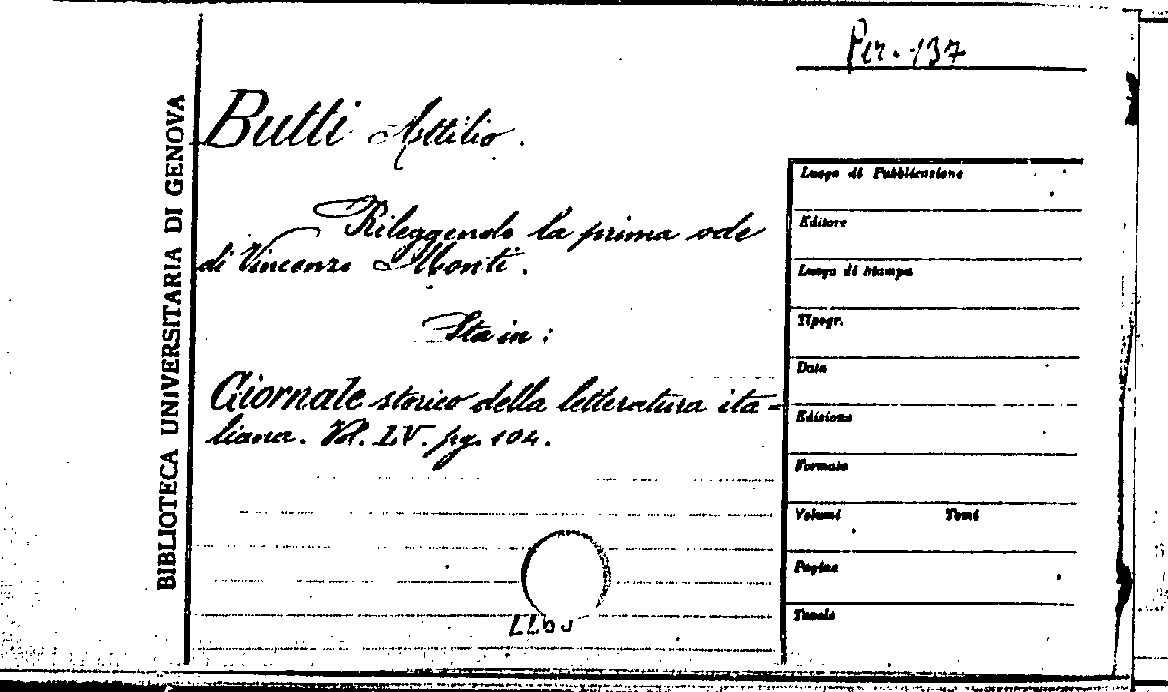 Per. 137
BIBLIOTECA UNIVERSITARIA DI GENOVA
Butti Attilio.
Rileggendo la prima ode
di Vincenzo Monti.
Sta in:
Giornale storico della letteratura ita=
liana. Vol. LV. pg. 104.
Luogo di Pubblicazione
Editore
Luogo di Stampa
Tipogr.
Data
Edizione
Formato
Volumi Tomi
Pagine
Tavole